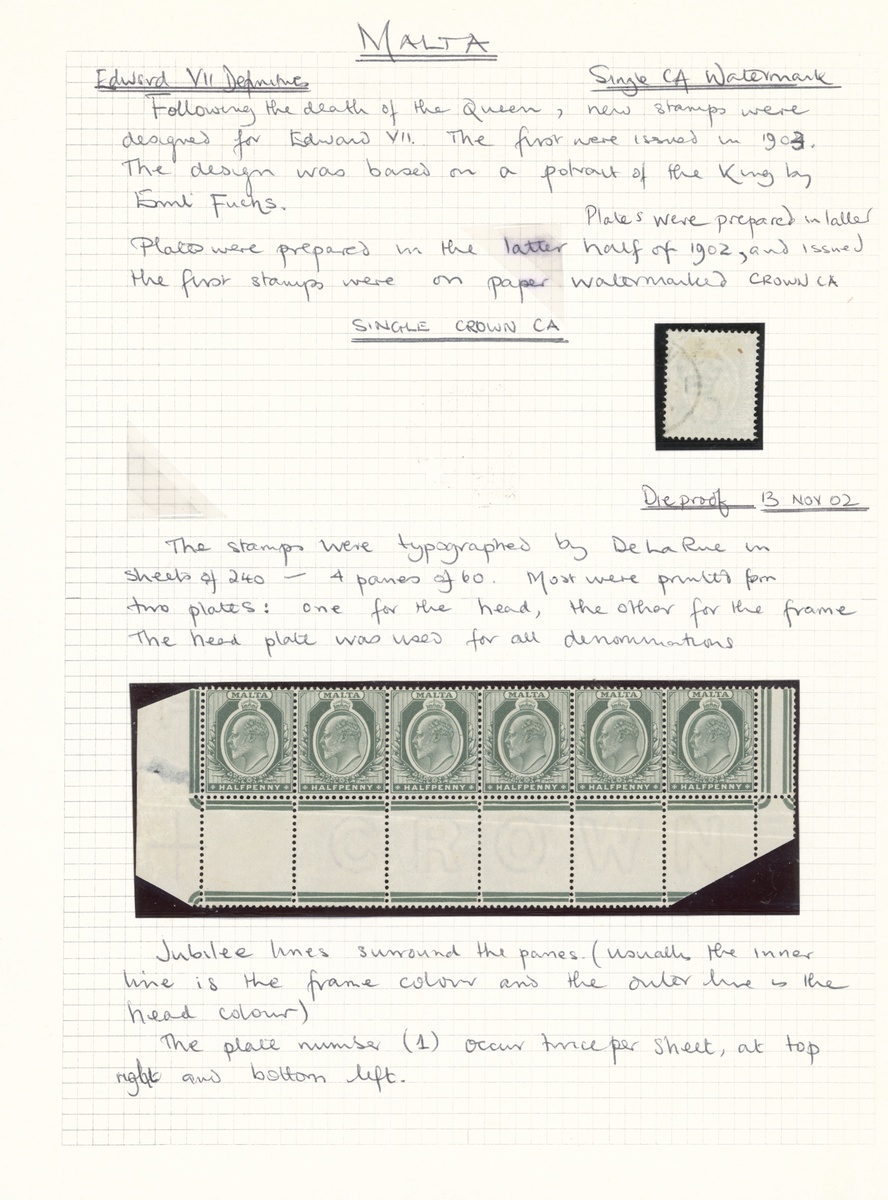 MALTA
Edward VII Definitives Single CA Watermark
Following the death of the Queen, new stamps were
designed for Edward VII. The first were issued in 1903.
The design was based on a potrait of the King by
Emil Fuchs.
Plates were prepared in latter
Plates were prepared in the latter half of 1902, and issued
the first stamps were on paper watermarked CROWN CA
SINGLE CROWN CA
Die proof 13 NOV 02
The stamps were typographed by De La Rue in
sheets of 240 — 4 panes of 60. Most were printed from
two plates: one for the head, the other for the frame
The head plate was used for all denominations
MALTA MALTA MALTA MALTA MALTA MALTA
HALFPENNY HALFPENNY HALFPENNY HALFPENNY HALFPENNY HALFPENNY
CROWN
Jubilee lines surround the panes. (usually the inner
line is the frame colour and the outer line is the
head colour)
The plate number (1) occur twice per sheet, at top
right and bottom left.